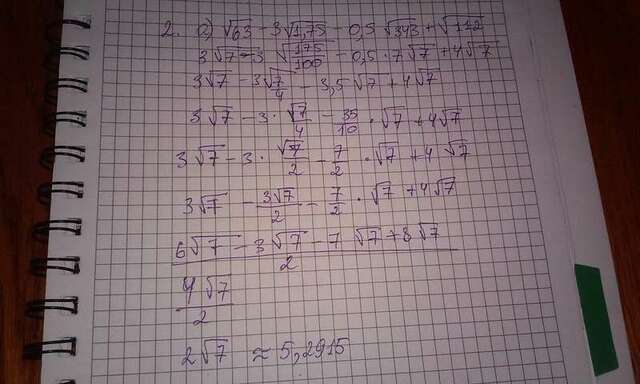 2. а) √63 - 3√1,75 - 0,5 √343 + √112
3√7 - 3 √175/100 - 0,5 · 7√7 + 4√7
3√7 - 3√7/4 - 3,5 √7 + 4√7
3√7 - 3 · √7/4 - 35/10 · √7 + 4√7
3√7 - 3 · √7/2 - 7/2 · √7 + 4√7
3√7 - 3√7/2 - 7/2 · √7 + 4√7
6√7 - 3√7 - 7√7 + 8√7
2
4√7
2
2√7 ≈ 5,2915